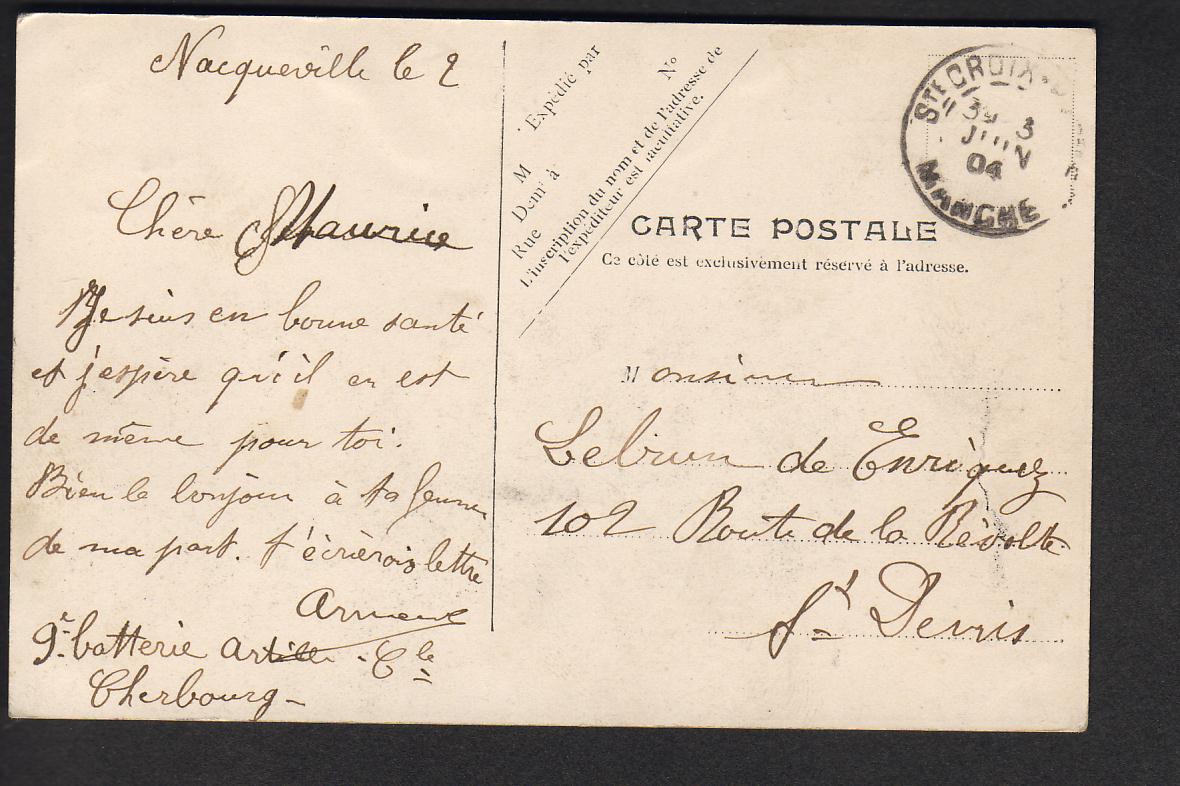 Nacqueville le 2
Chère Maurice
Je suis en bonne santé
et j'espère qu'il en est
de même pour toi.
Bien le bonjour à ta femme
de ma part. t'écrierois lettre
9e batterie Artille - Cle
Cherbourg -
Expédié par
M
Demt à
Rue
No
L'inscription du nom et de l'adresse de
l'expéditeur est facultative.
CARTE POSTALE
Ce côté est exclusivement réservé à l'adresse.
Monsieur
Lebrun de Enriquez
102 Route de la Révolte
St Denis
STE CROIX
3
JUIN
04
MANCHE